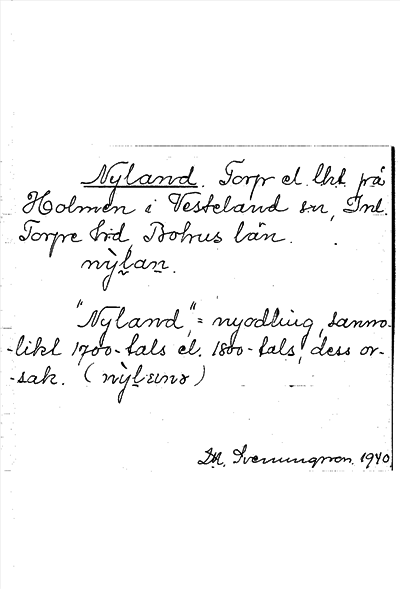 Nyland. Torp el. lht. på
Holmen i Vesteland s:n, Inl.
Torpe hrd Bohus län.
nỳḷaṇ.
"Nyland" = nyodling, sanno-
-likt 1700-tals el. 1800-tals, dess or-
-sak. (
Sveningsson. 1940